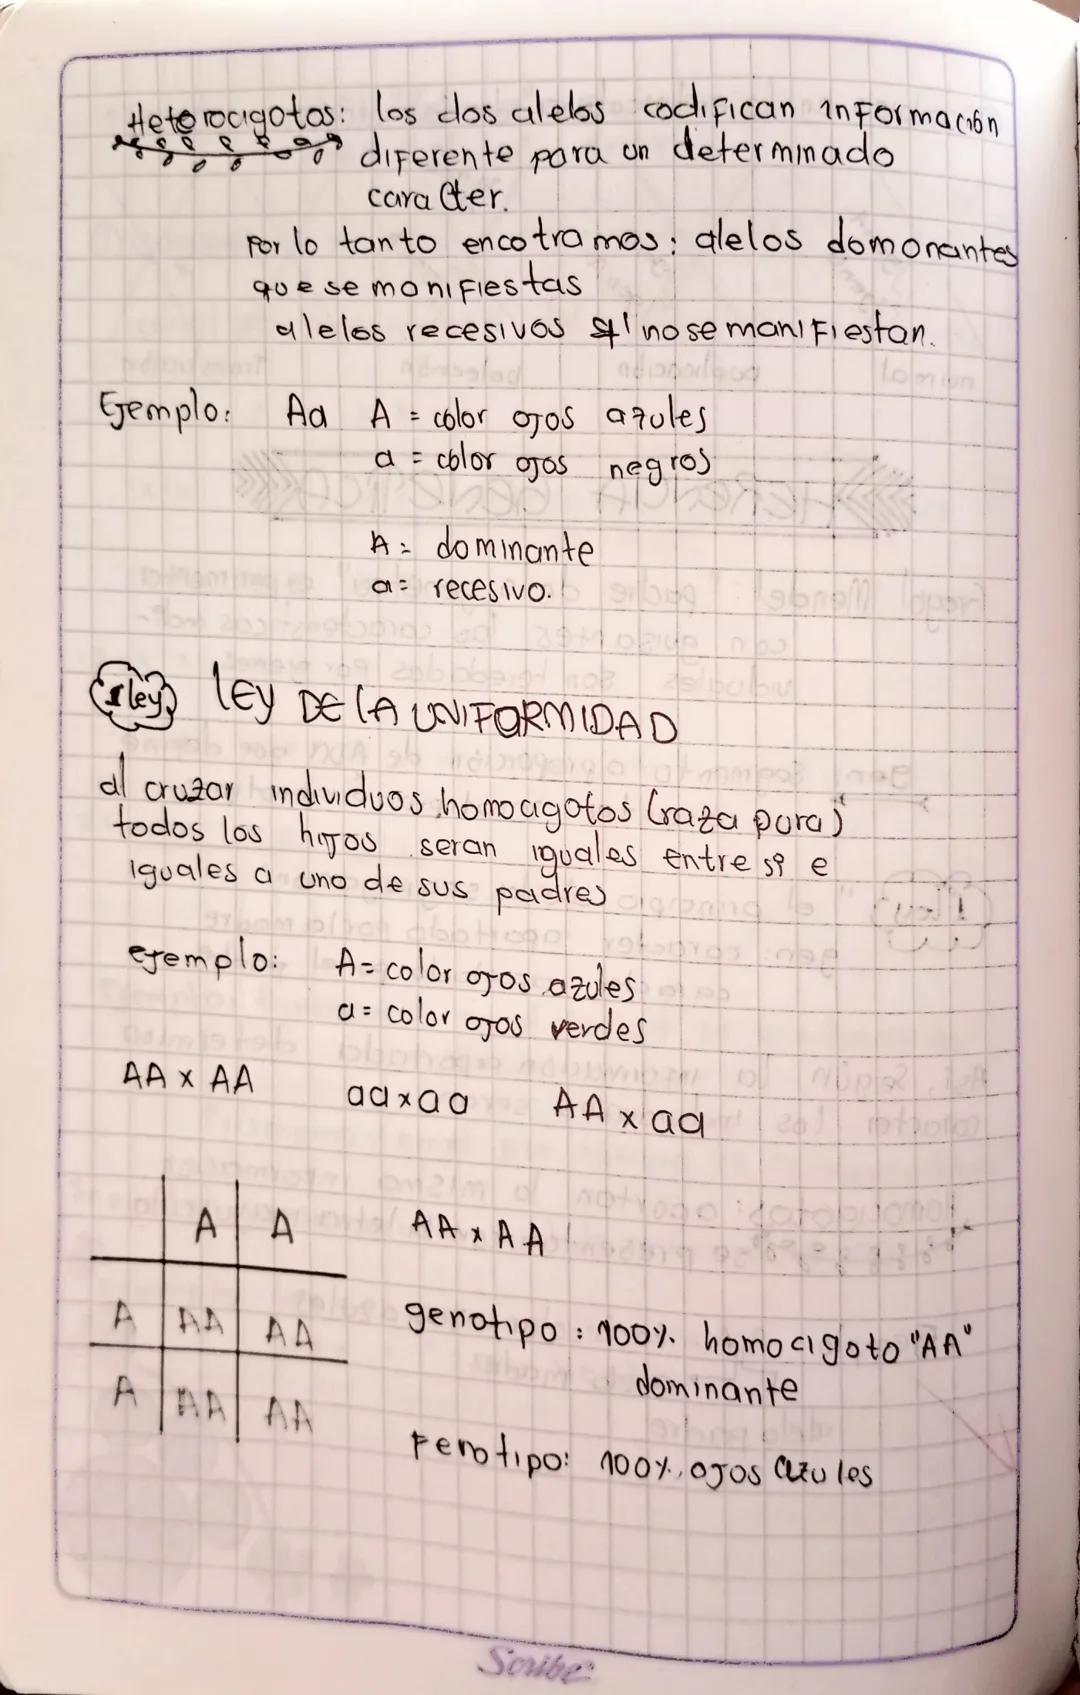 Heterocigotos: los dos alelos codifican información
diferente para un determinado
caracter.
Por lo tanto encotramos: alelos domonantes
que se monifiestas
alelos recesivos no se manifiestan.
Ejemplo: Aa A = color ojos azules
a = color ojos negros
A = dominante
a = recesivo.
1 ley LEY DE LA UNIFORMIDAD
al cruzar individuos homocigotos (raza pura)
todos los hijos seran iguales entre si e
iguales a uno de sus padres
ejemplo: A = color ojos azules
a = color ojos verdes
AA x AA aa x aa AA x aa
A A AA x AA
A AA AA genotipo: 100% homocigoto "AA"
dominante
A AA AA
Fenotipo: 100%, ojos azules
Scribe